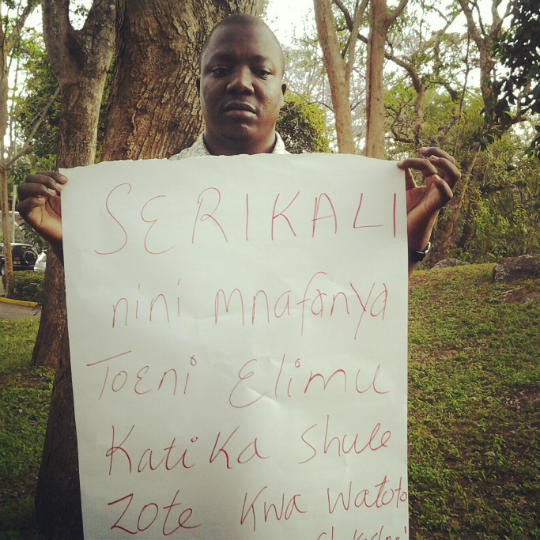 SERIKALI
nini mnafanya
Toeni Elimu
Katika Shule
Zote Kwa Watoto